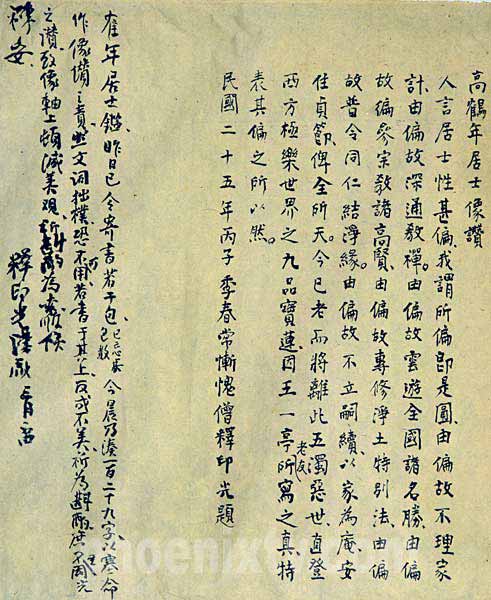 高鶴年居士像讚
人言居士性甚偏、我謂所偏即是圓、由偏故不理家
計、由偏故深通教禪、由偏故雲遊全國諸名勝、由偏
故徧參宗教諸高賢、由偏故專修淨土特別法、由偏
故普令同仁結淨緣、由偏故不立嗣續、以家為庵、安
住貞節、俾全所天、今已老而將離此五濁惡世、直登
西方極樂世界之九品寶蓮、因王一亭老友所寫之真、特
表其偏之所以然。
民國二十五年丙子季春常慚愧僧釋印光題
隺年居士鑑、昨日已令寄書若干包、已忘其包數 今晨乃湊一百二十九字、以塞命
作像讚之責、然文詞拙樸、恐不可用、若書于其上、反或不美、祈為斟酌、庶不 光
之讚、致像軸上頓減美觀、祈 為 候
禪安
釋印光謹啟